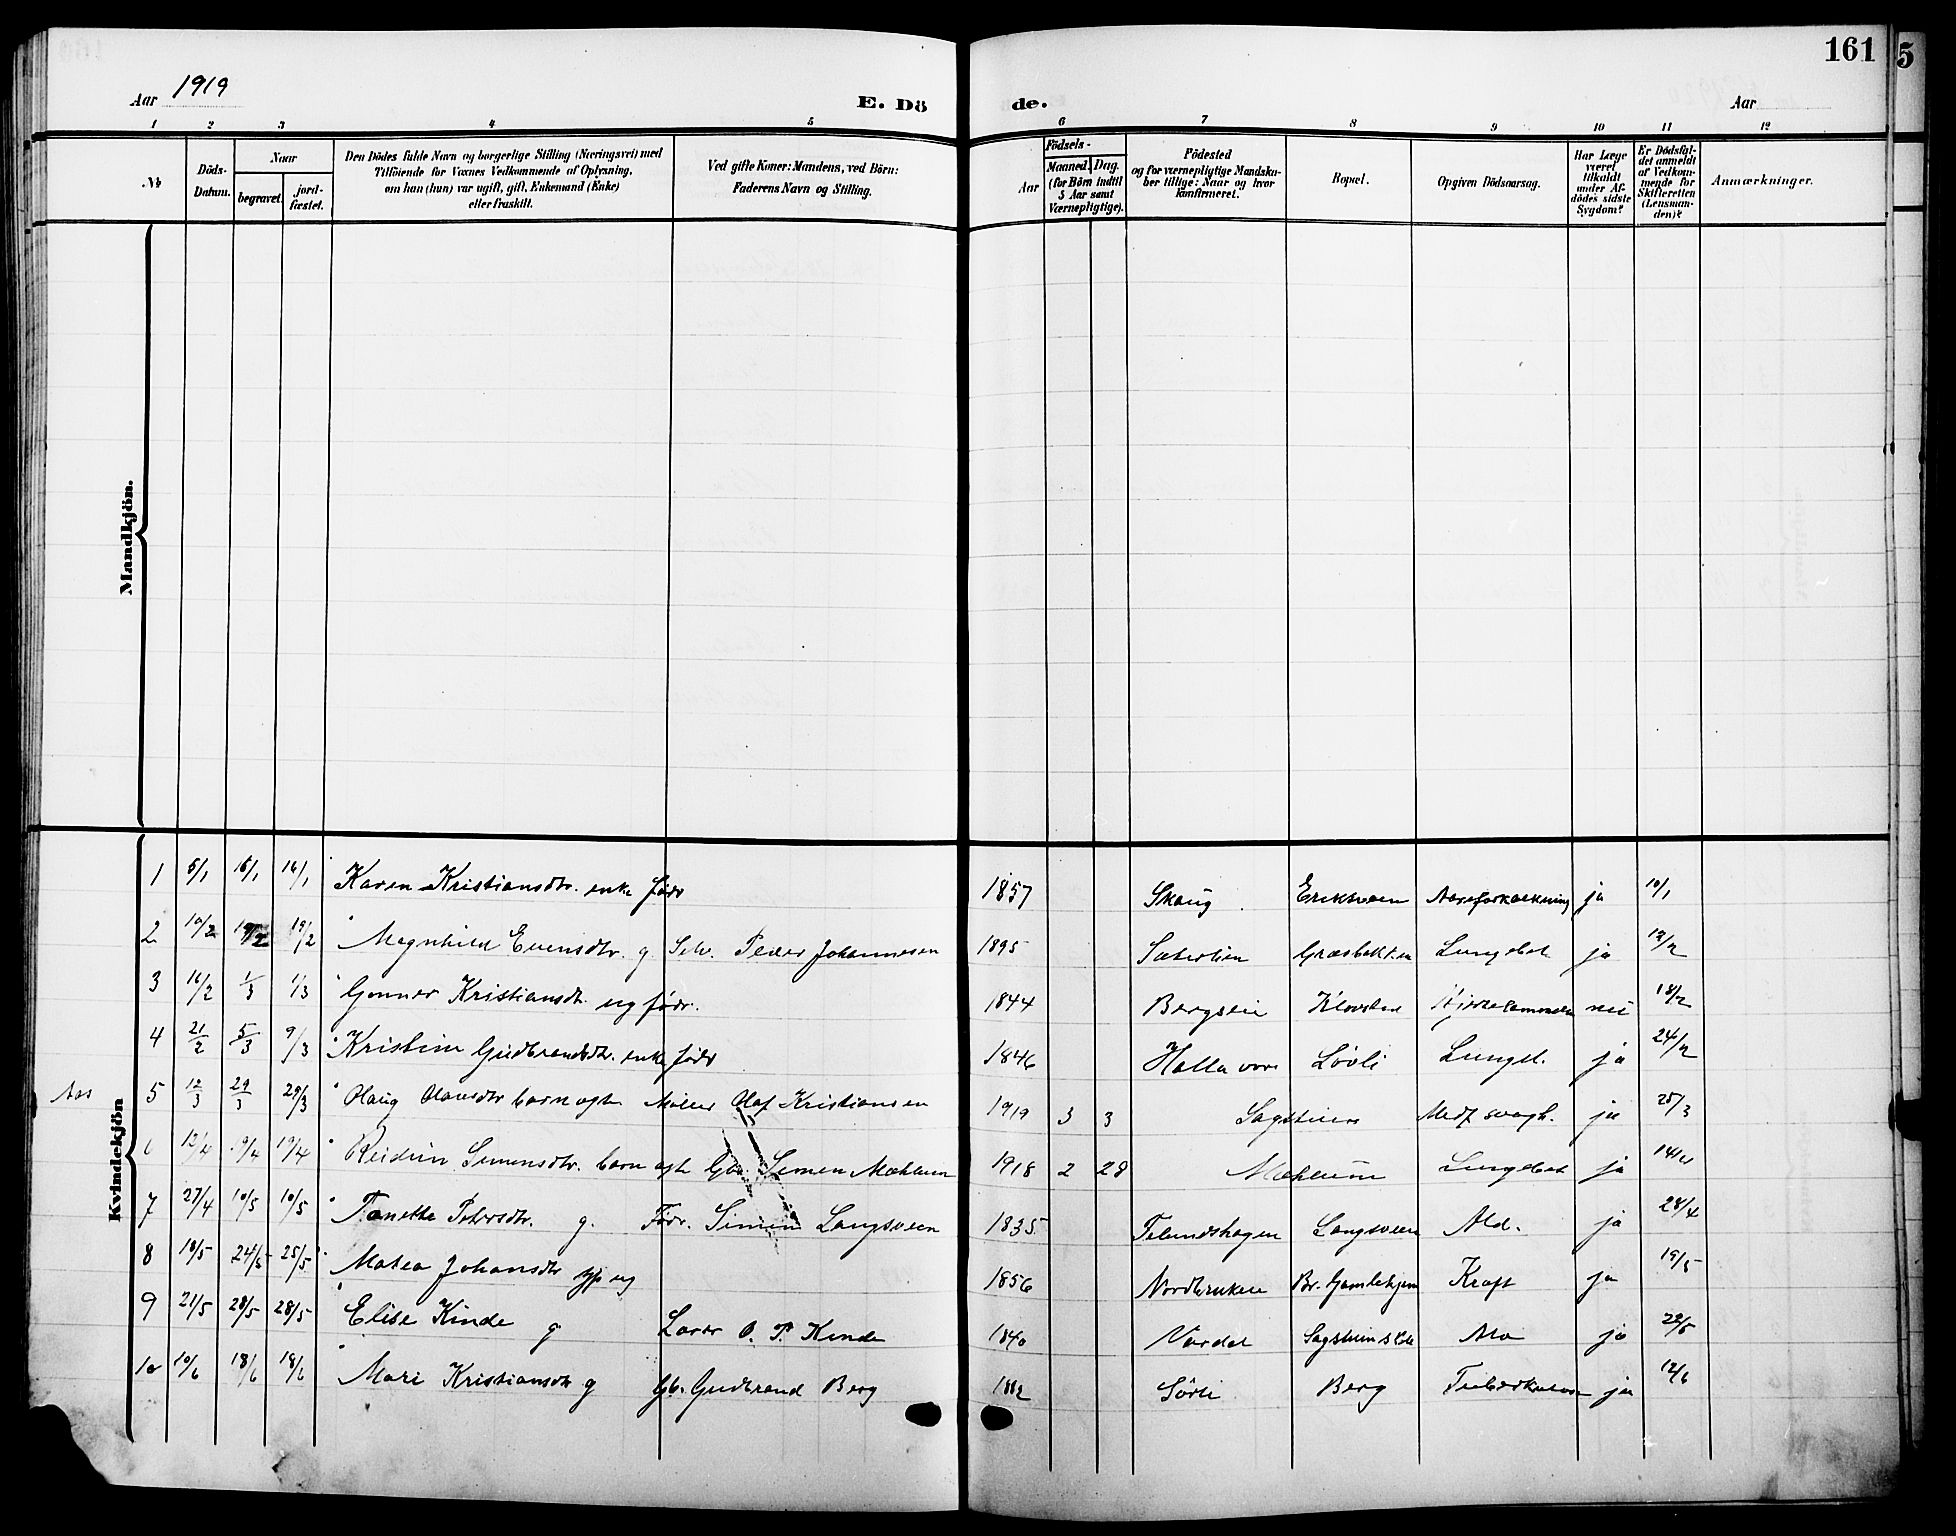 161
5
Aar 1919
E. Dö
de.
Aar
1 2 3 4 5 6 7 8 9 10 11 12
№
Döds-Datum.
Naar
begravet.
jord-fæstet.
Den Dödes fulde Navn og borgerlige Stilling (Næringsvei) med
Tilföiende for Voxnes Vedkommende af Oplysning,
om han (hun) var ugift, gift, Enkemand (Enke)
eller fraskilt.
Ved gifte Koner: Mandens, ved Börn:
Faderens Navn og Stilling.
Födsels-
Aar
Maaned. Dag.
(for Börn indtil
5 Aar samt
Værnepligtige).
Födested
og for værnepligtige Mandska-
ber tillige: Naar og hvor
konfirmeret.
Bopæl.
Opgiven Dödsaarsag.
Har Læge
været
tilkaldt
under Af-
dödes sidste
Sygdom?
Er Dödsfal-
det anmeldt
af Vedkom-
mende for
Skifteretten
(Lensman-
den)?
Anmærkninger.
Mandkjön.
Kvindekjön
1 5/1 16/1 16/1 Karen Kristiansdtr. enke födr 1857 Skaug Eriksveen Aareforkalkning ja 10/1
2 10/2 19/2 19/2 Magnhild Evensdtr. g Selv. Peder Johannesen 1895 Sæterlien Græsbakken Lungebet ja 12/2
3 16/2 1/3 1/3 Gunner Kristiansdt. ug födr. 1844 Bergseie Klovsten nei 18/2
4 21/2 5/3 9/3 Kristine Gudbrandsdtr. enke födr 1846 Lövli Lungebet. ja 24/2
Aas 5 12/3 29/3 29/3 Olaug Olavsdtr barn ægte Møller Olaf Kristiansen 1919 3 3 Sagstuen Medf. svagh. ja 25/3
6 12/4 19/4 19/4 Reidun Simensdtr. barn ægte Gbr. Simen Mæhlum 1918 2 28 Mæhlum Lungebet ja 14/4
7 27/4 10/5 10/5 Tonette Petersdtr. g. Födr. Simen Langsveen 1835 Langsveen Ald. ja 28/4
8 18/5 24/5 25/5 Matea Johansdtr syp ug 1856 Nordbruket Br. Gamlehjem Kræft ja 19/5
9 21/5 28/5 28/5 Elise Kinde g Lærer O. P. Kinde 1840 Vardal Sagstuen skole ja 22/5
10 10/6 18/6 18/6 Mari Kristiansdtr g Gb. Gudbrand Berg Sörli Berg Tuberkulose ja 12/6